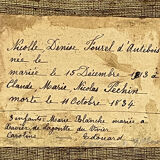 Nicolle Denise Fourel d'Aulebois
née le
mariée le 15 Décembre 1813 à
Claude Marie Nicolas Pechin
morte le 11 Octobre 1834.
3 enfants: Marie Blanche mariée à
de Lagoutte du Vivier
Caroline Edouard